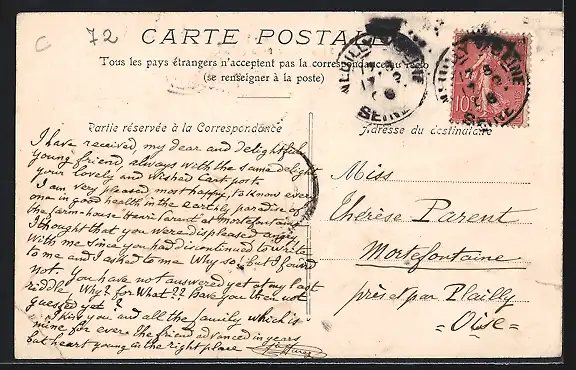 C 72
CARTE POSTALE
Tous les pays étrangers n'acceptent pas la correspondance au recto
(se renseigner à la poste)
NEUILLY S SEINE
SEINE
10
Partie réservée à la Correspondance
I have received my dear and delightful
young friend, always with the same delight
your lovely and wished Cart post.
I am very pleased most happy, to know every
one in good health in the earthly paradise of
the farm-house Henri Parent at Mortefontaine
I thought that you were displeased angry
With me since you had discontinued to write
to me and I asked to me Why so! but I found
not. You have not answered yet at my last
riddle. Why? for What?? Have you then not
guessed yet?
I kiss you and all the family which is
mine for ever. The friend advanced in years
but heart young in the right place
Adresse du destinataire
Miss
Thérèse Parent
Mortefontaine
près et par Plailly
= Oise =